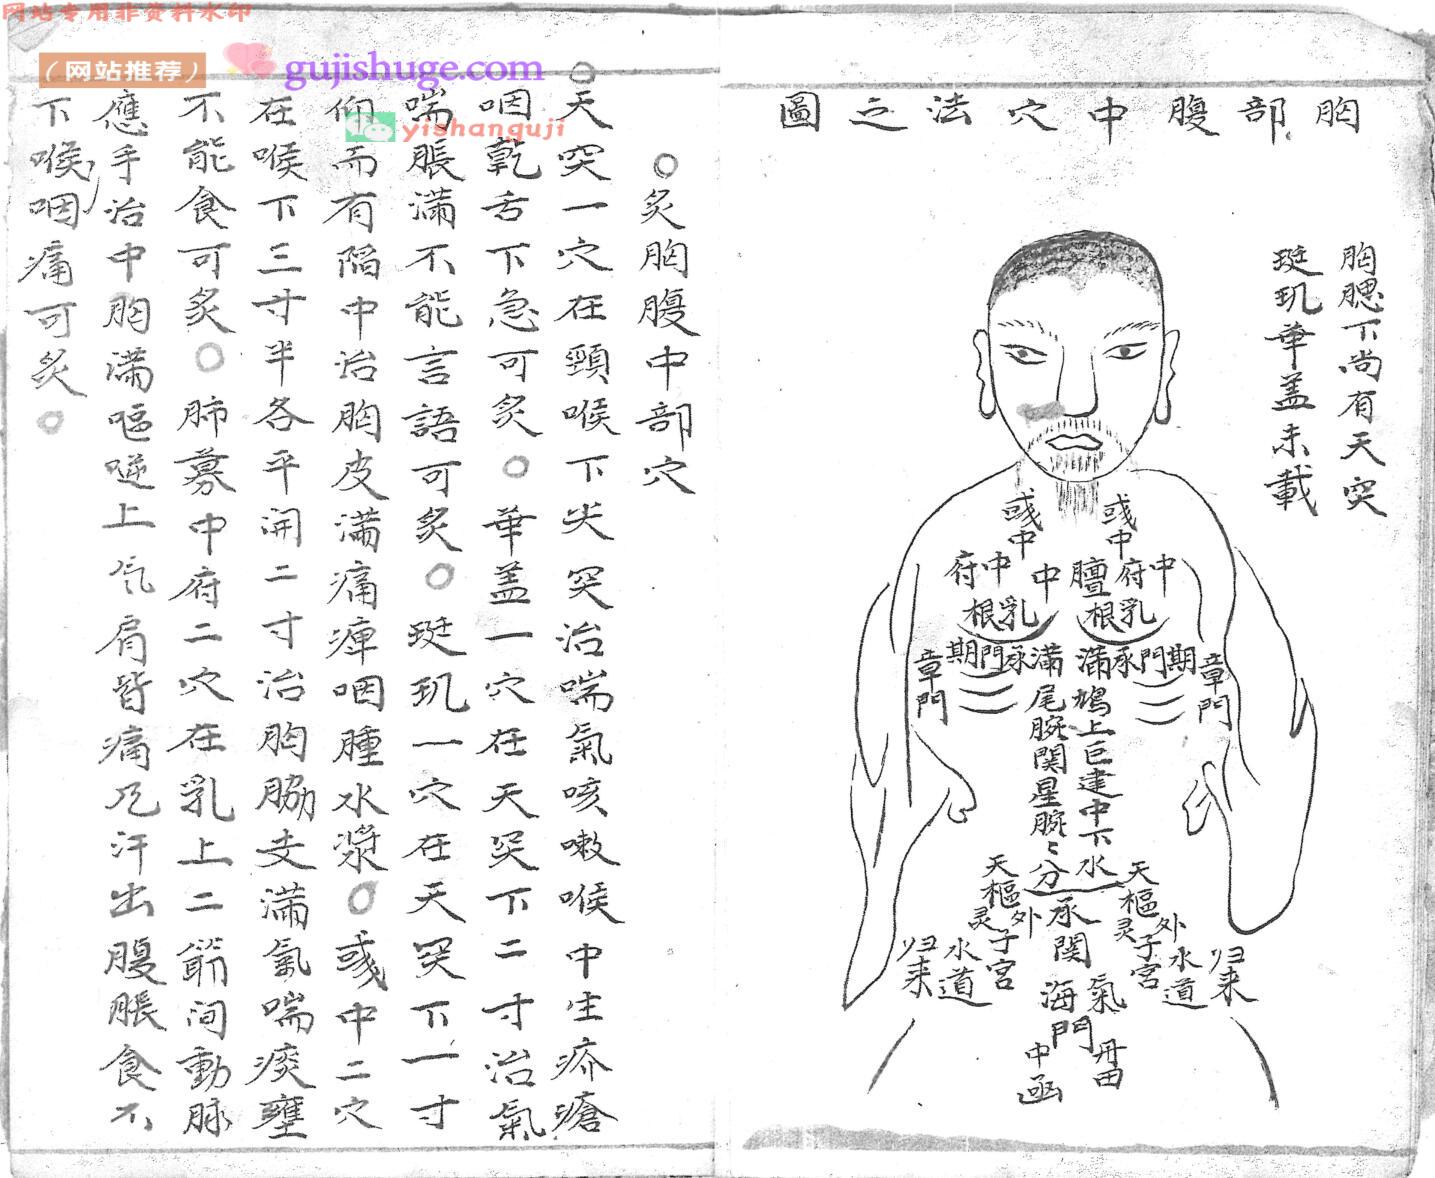 网站专用非资料水印
（网站推荐）
gujishuge.com
yishanguji
胸部腹中穴法之圖
胸腮下尚有天突
珽玑華盖未載
彧中
彧中
中府
膻中
中府
乳根
乳根
期門
承滿
承滿
期門
章門
章門
鳩尾
上脘
巨関
建星
中脘
下〻
水分
天樞
天樞
外灵
外灵
子宮
子宮
水道
水道
归来
归来
承
関
氣海
門
丹田
中函
○炙胸腹中部穴
○天突一穴在頸喉下尖突治喘氣咳嗽喉中生疥瘡
咽乾舌下急可炙○華盖一穴在天突下二寸治氣
喘脹滿不能言語可炙○珽玑一穴在天突下一寸
仰而有陷中治胸皮滿痛痺咽腫水漿○彧中二穴
在喉下三寸半各平開二寸治胸脇支滿氣喘痰壅
不能食可炙○肺募中府二穴在乳上二筯间動脉
應手治中胸滿嘔逆上氕肩背痛乃汗出腹脹食不
下喉咽痛可炙○